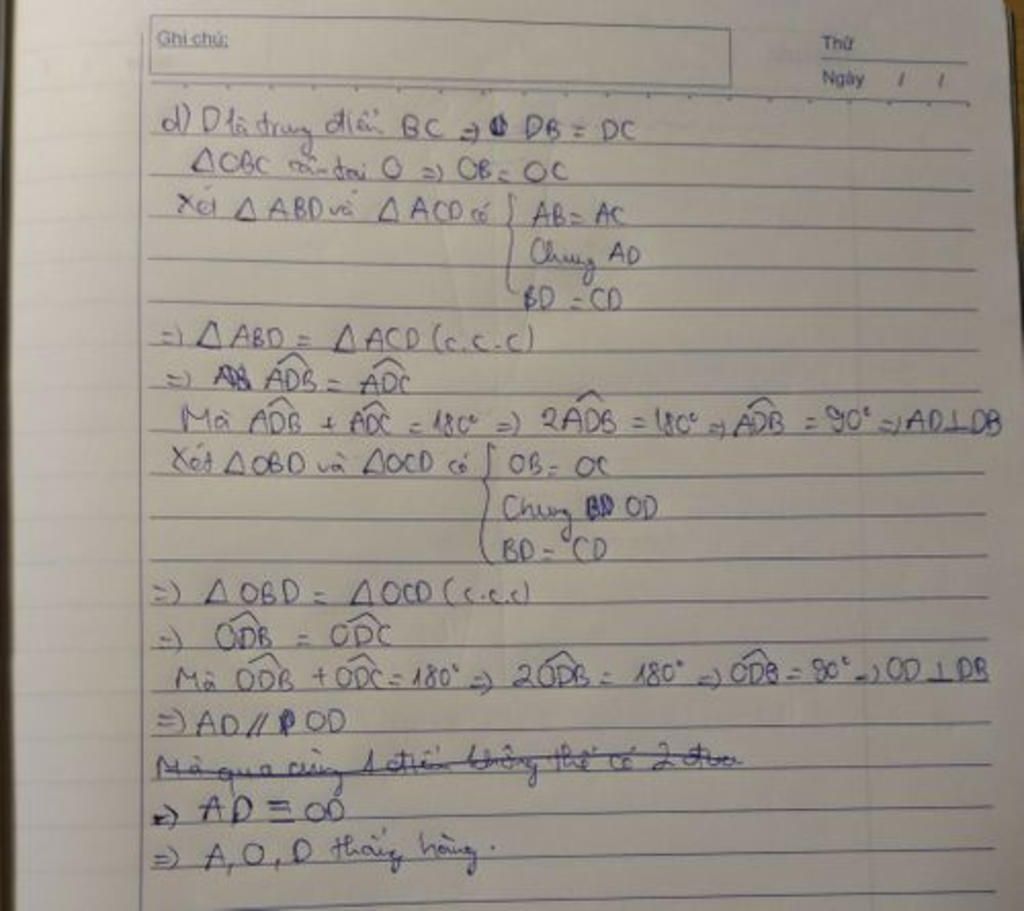 Ghi chú:
Thứ
Ngày / /
d) D là trung điểm BC => DB = DC
△OBC cân tại O => OB = OC
Xét △ABD và △ACD có { AB = AC
Chung AD
BD = CD
=> △ABD = △ACD (c.c.c)
=> ADB^ = ADC^
Mà ADB^ + ADC^ = 180° => 2ADB^ = 180° => ADB^ = 90° => AD⊥DB
Xét △OBD và △OCD có { OB = OC
Chung OD
BD = CD
=> △OBD = △OCD (c.c.c)
=> ODB^ = ODC^
Mà ODB^ + ODC^ = 180° => 2ODB^ = 180° => ODB^ = 90° => OD⊥DB
=> AD // OD
Mà qua cùng 1 điểm không thể có 2 đường
=> AD ≡ OD
=> A, O, D thẳng hàng.